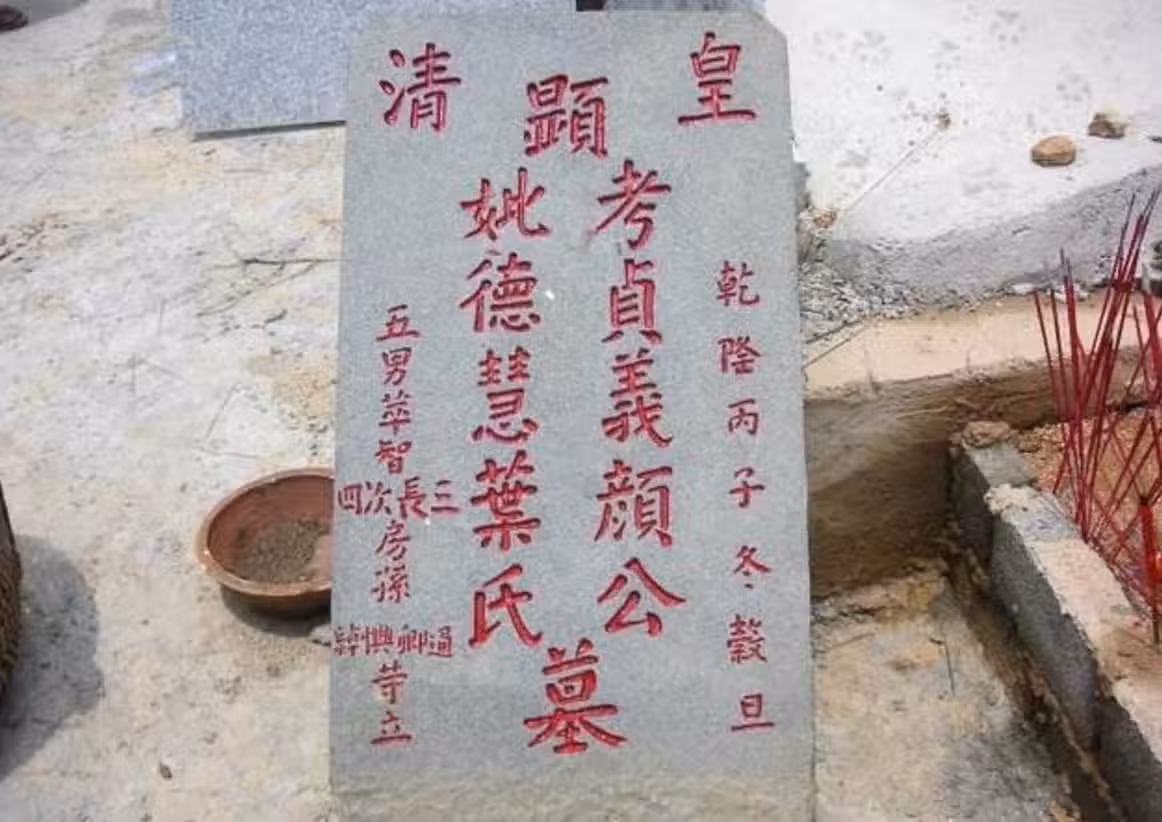 皇清
乾隆丙子冬穀旦
顯
考貞義顏公
妣德慧葉氏
墓
五男苹智
三長次四
房孫
卿興
等立